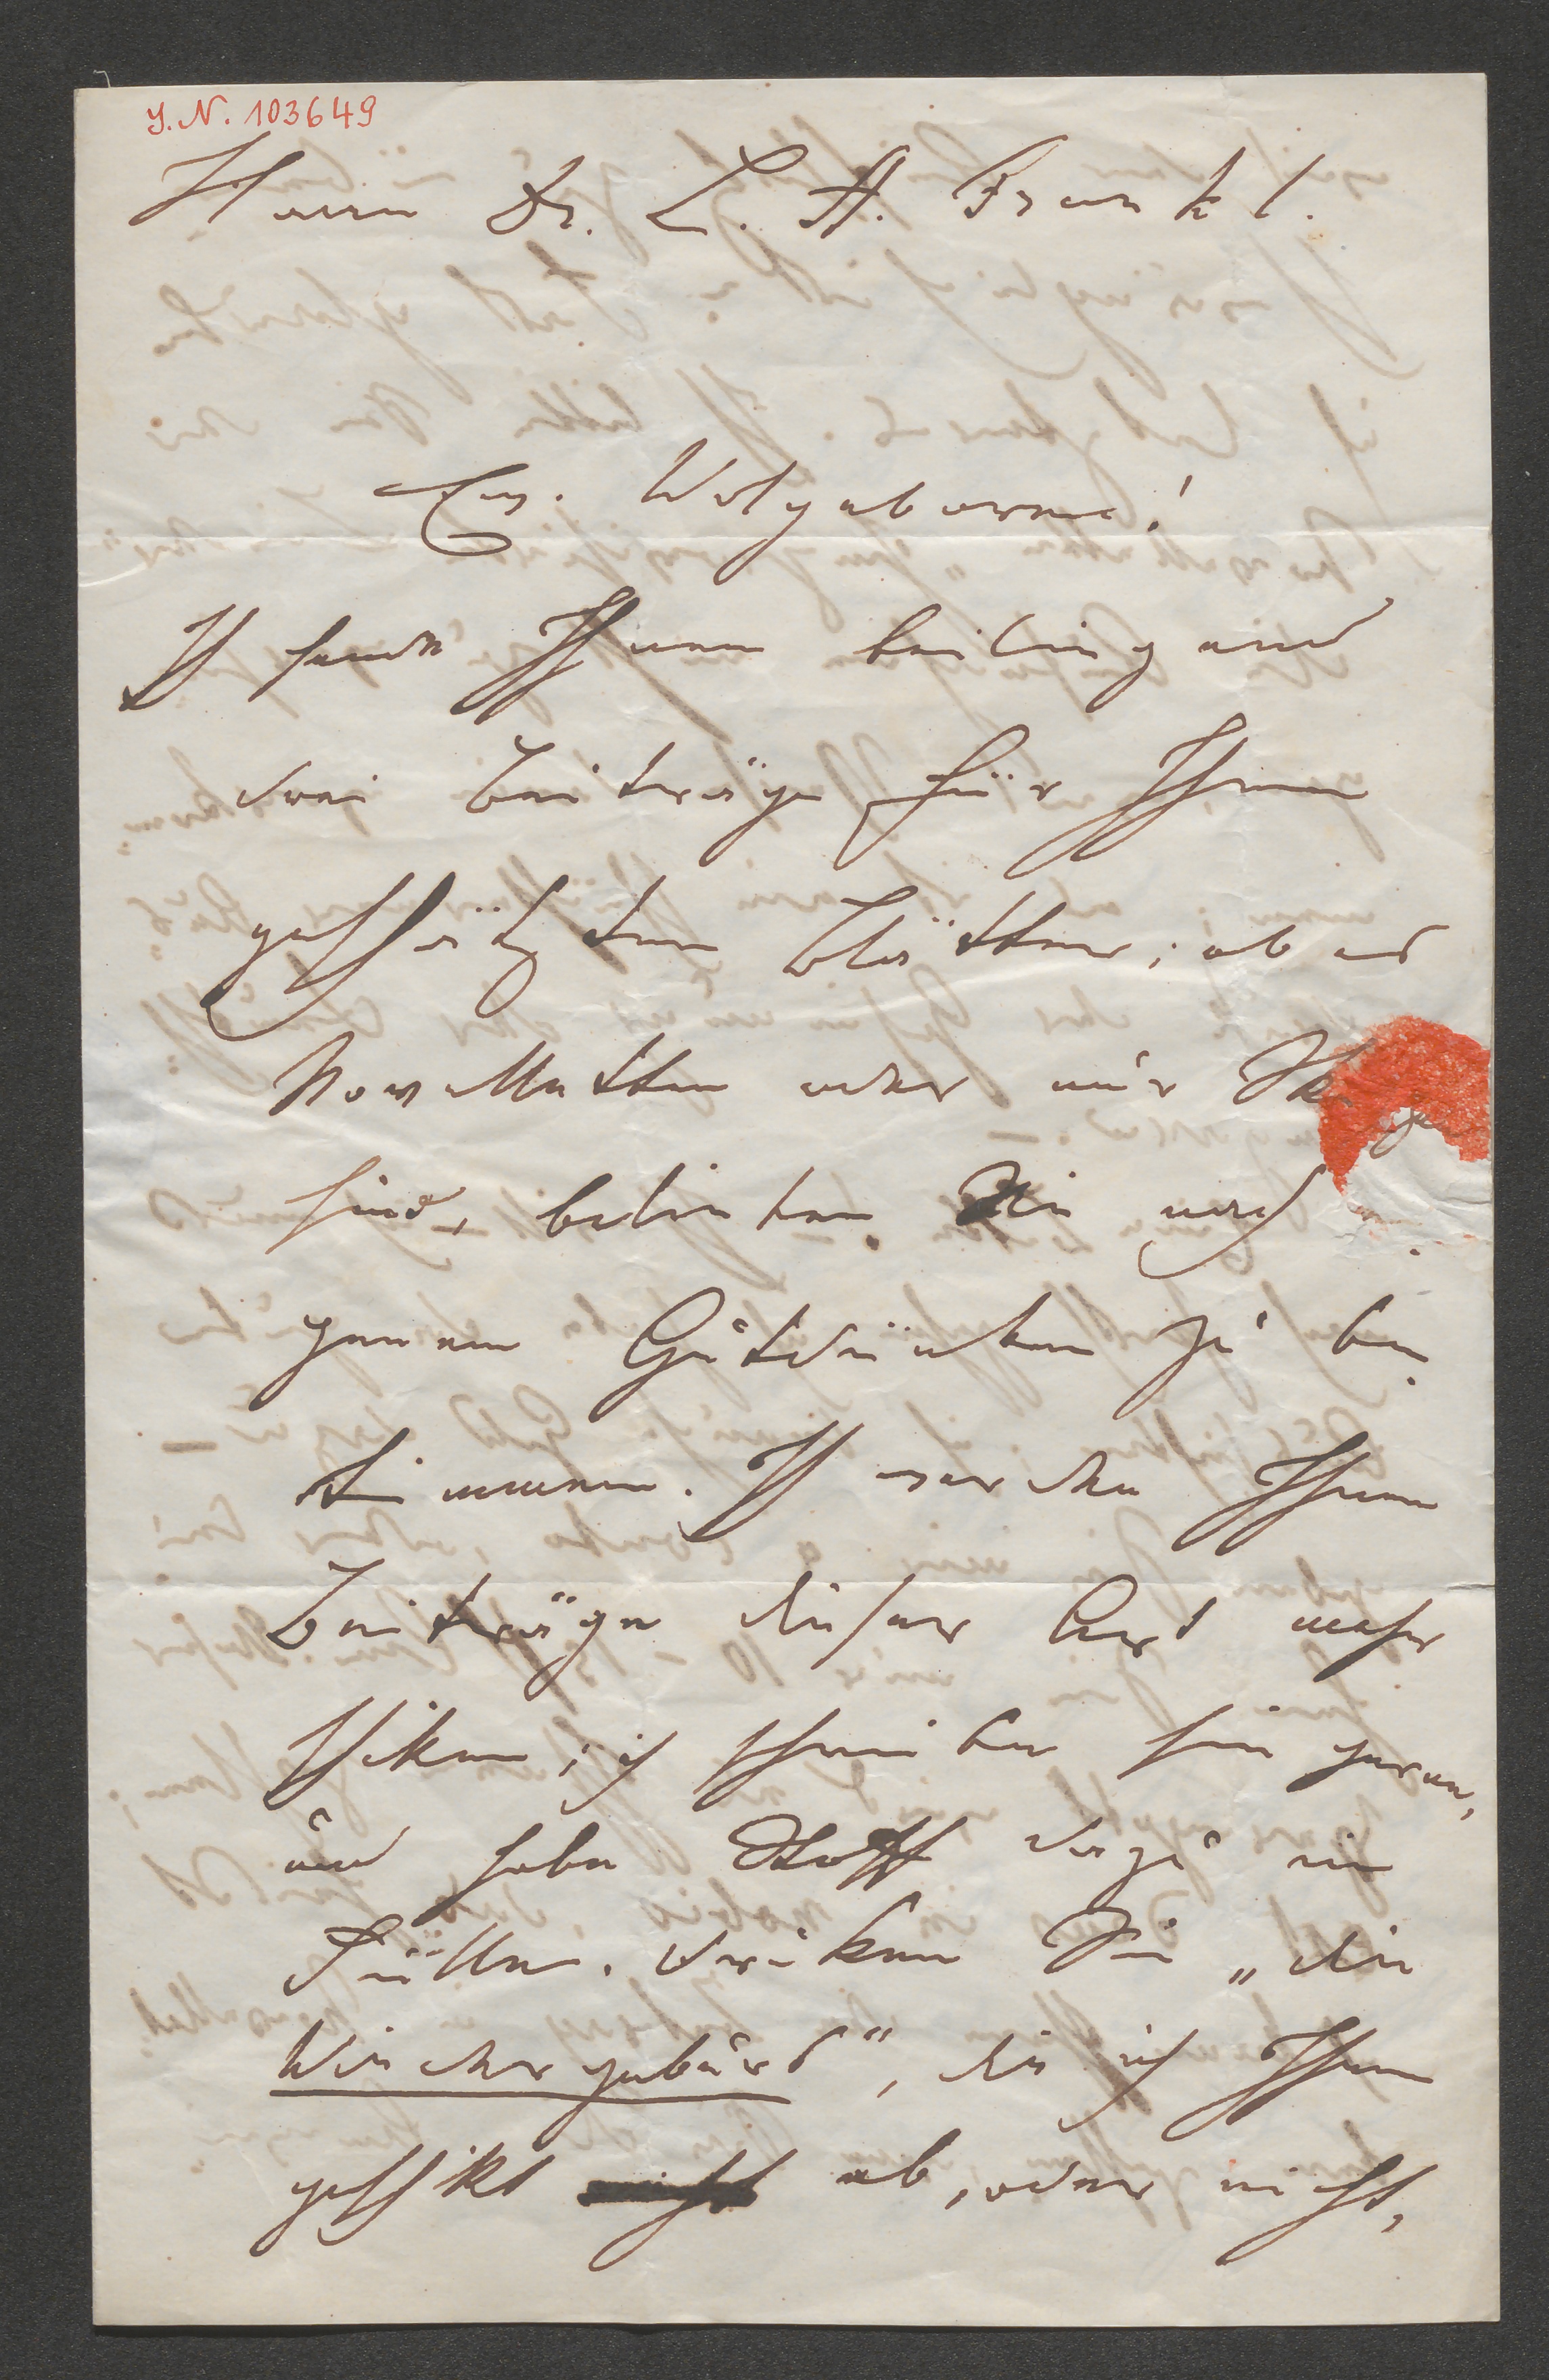 J. N. 103649
Herrn Dr. L. A. Frankl.
Ew. Wolgeboren!
Ich sende Ihnen beiliegend
drei Beiträge für Ihre
geschätzten Blätter; ob es
Novelletten oder nur
sind, belieben Sie nach
genem Gutdünken zu be
timmen. Ich werde Ihnen
Beiträge dieser Art mehr
schiken; ich schreibe sie gerne,
und habe Stoff dazu in
Fülle. Druken Sie „die
Wiedergeburt", die ich Ihnen
geschikt ab, oder nicht,